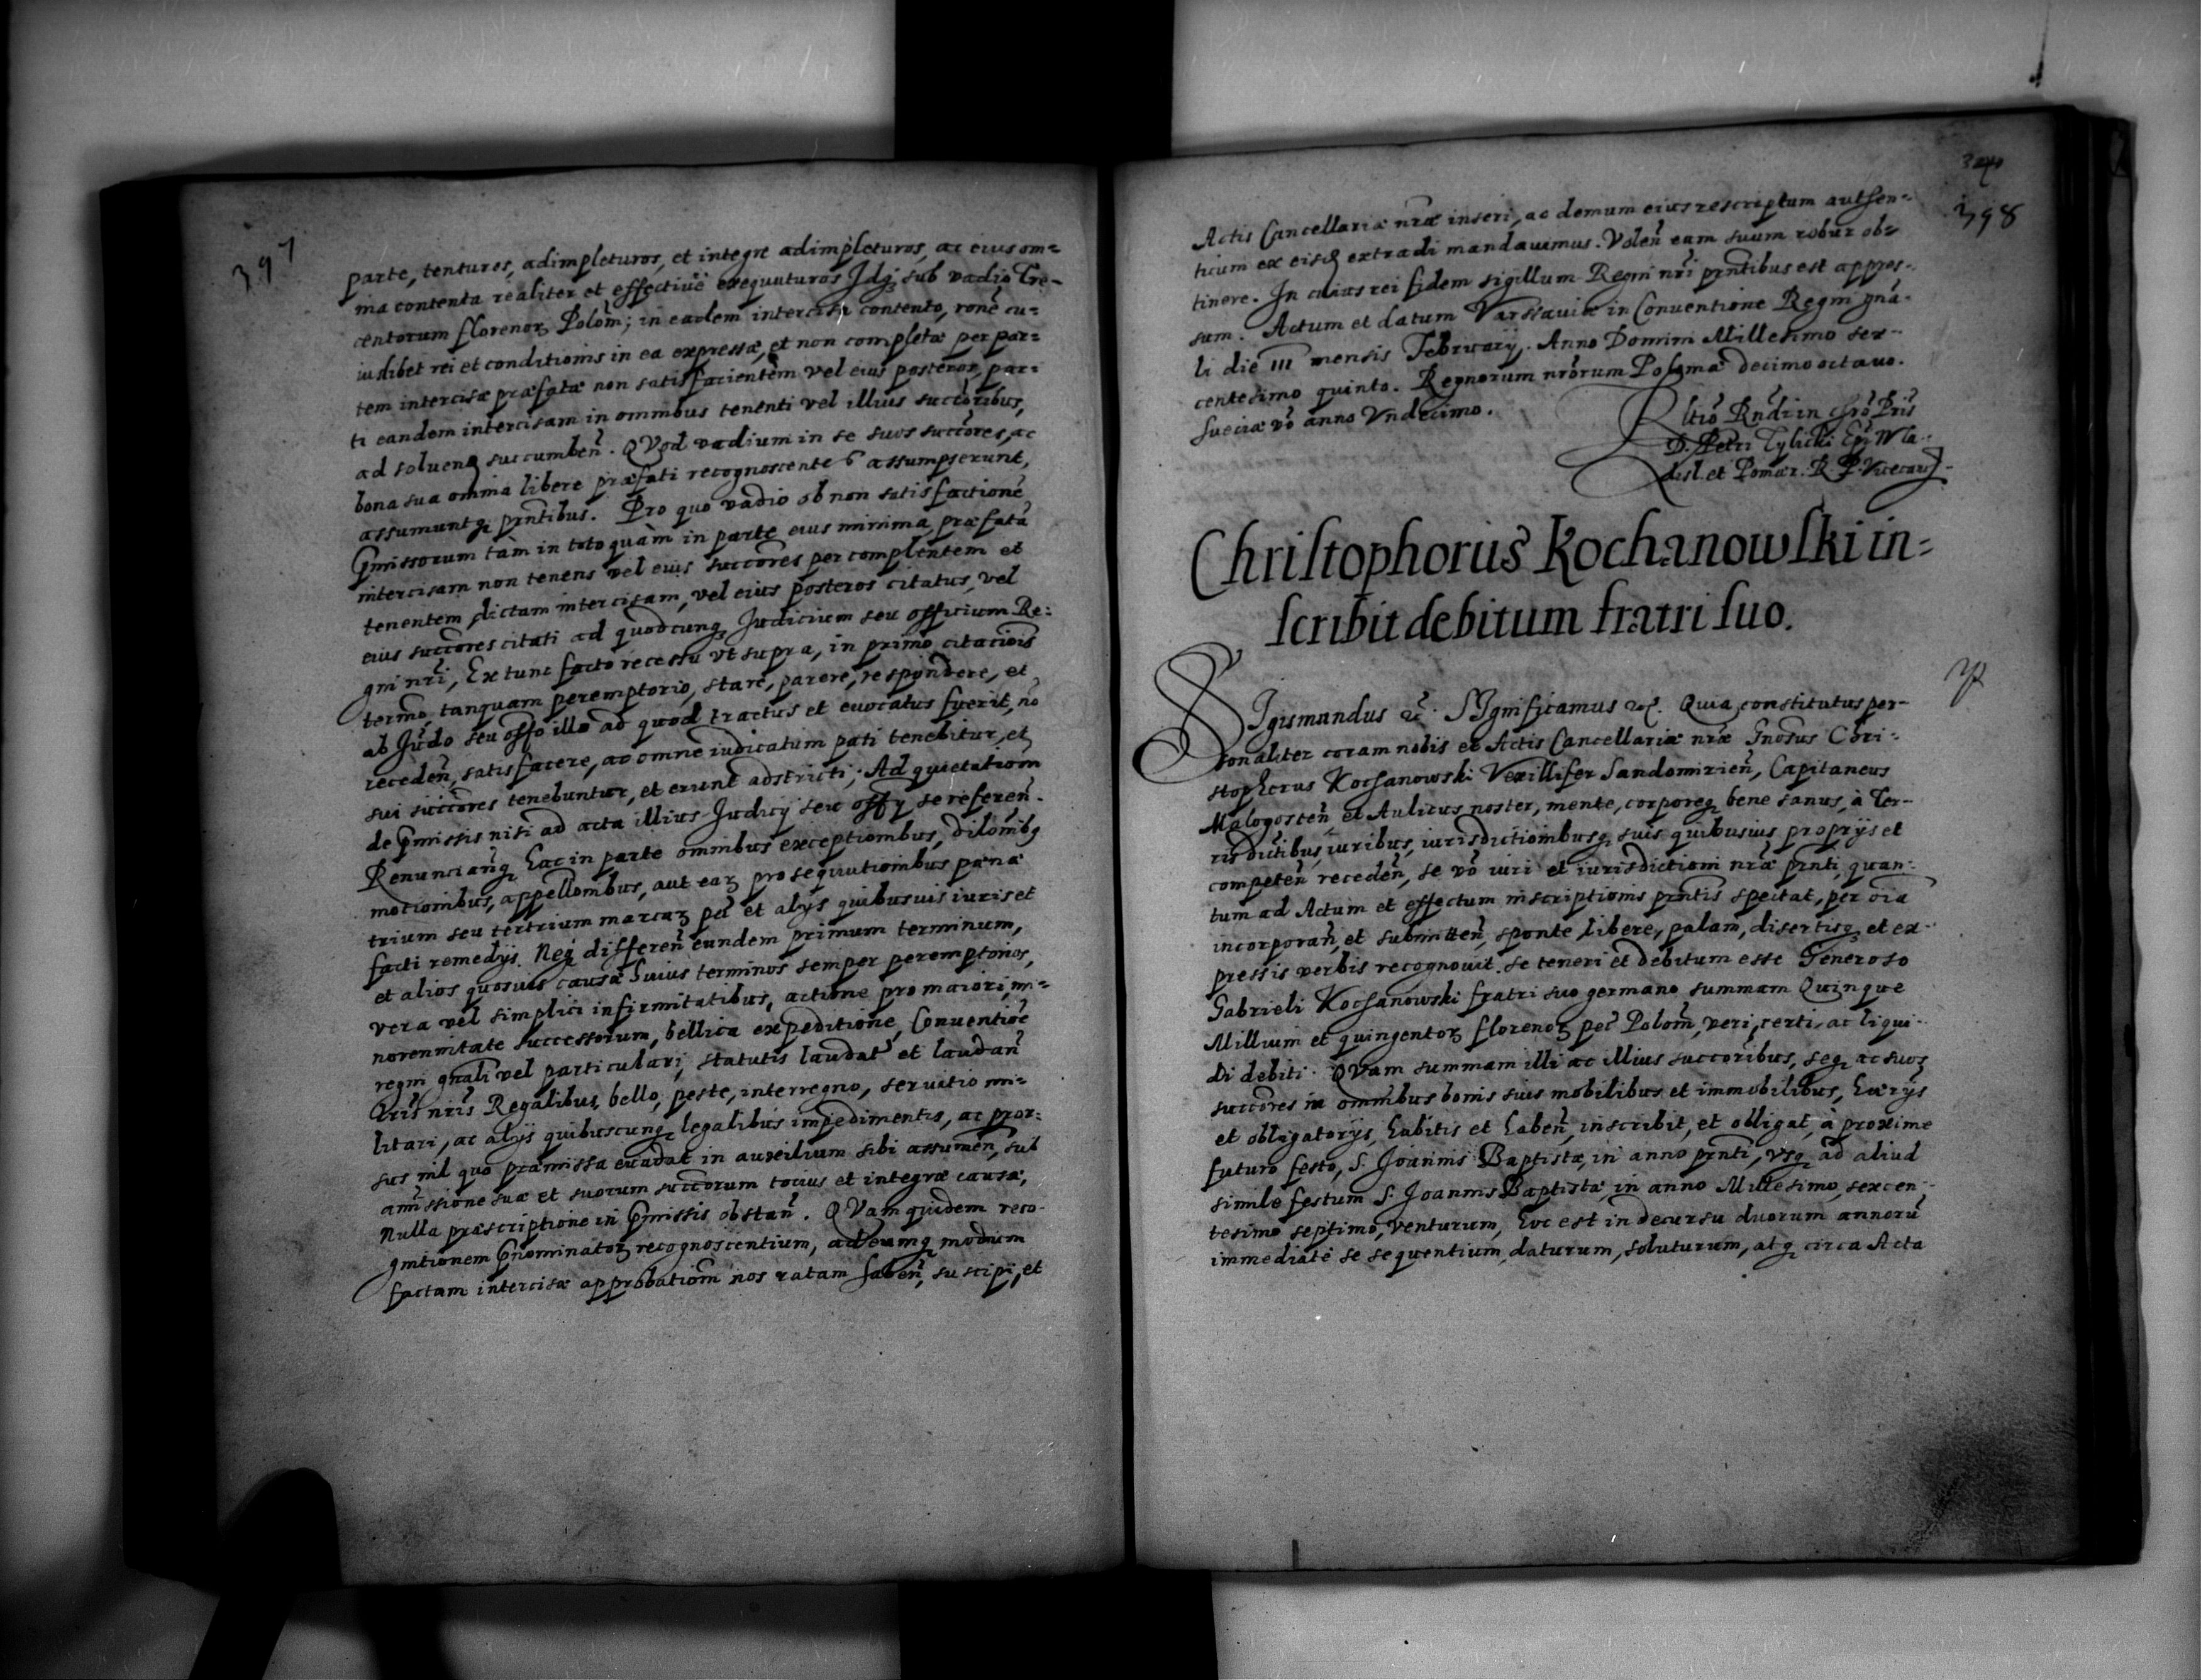 397
parte, tenturos, adimpleturos, et integre adimpleturos, ac eius om=
nia contenta realiter et effectiuè exequuturos Idq; sub vadio Tre-
centorum florenoꝝ Polon̄; in eadem intercisa contento, ronē cu=
iuslibet rei et conditionis in ea expressæ, et non completæ per par=
tem intercisæ præfatæ non satisfacientem vel eius posteroꝝ, par=
ti eandem intercisam in omnibus tenenti vel illius succoribus,
ad soluenꝭ succumben̄. QVod vadium in se suos succōres, ac
bona sua omnia libere præfati recognoscentes assumpserunt,
assumuntq; prn̄tibus. Pro quo vadio ob non satisfactionē
p̄missorum tàm in toto quàm in parte eius minima, præfatā
intercisam non tenens vel eius succōres per complentem et
tenentem dictam intercisam, vel eius posteros citatus, vel
eius succōres citati ad quodcunq; Iudicium seu officium Re=
gni nr̄i, Extunc facto recessu vt supra, in primo citationis
termō, tanquam peremptorio, stare, parere, respondere, et
ab Iudō seu offō illo ad quod tractus et euocatus fuerit, nō
receden̄, satisfacere, ac omne iudicatum pati tenebitur, et
sui succōres tenebuntur, et erunt adstricti; Ad quietationī
de p̄missis nisi ad acta illius Iudicy seu offy se referen̄.
Renuncian̄q; hac in parte omnibus exceptionibus, dilōnibꝫ
motionibus, appellōnibus, aut eaꝝ prosequutionibus pæna
trium seu tertrium marcaꝝ pec̄ et alys quibusuis iuris et
facti remedys. Neq; differen̄ eundem primum terminum,
et alios quosuis causæ huius terminos semper peremptorios,
vera vel simplici infirmitatibus, actione pro maiori, mi=
norennitate successorum, bellica expeditione, Conuentiōe
regni gn̄ali vel particulari, statutis laudat' et laudan̄
Lrīs nrīs Regalibus, bello, peste, interregno, seruitio mi=
litari, ac alys quibuscunq; legalibus impedimentis, ac pror=
sus nil quo præmissa euadat in auxilium sibi assumen̄, sub
amissione suæ et suorum succōrum tocius et integræ causæ,
Nulla præscriptione in p̄missis obstan̄. QVam quidem reco-
gnitionem p̄nominatoꝝ recognoscentium, ad eumq; modum
factam intercisæ approbationī nos ratam haben̄, suscipi, et
398
Actis Cancellariæ nr̄æ inseri, ac demum eius rescriptum authen=
ticum ex eisꝭ extradi mandauimus. Volen̄ eam suum robur ob=
tinere. In cuius rei fidem sigillum Regni nr̄i prn̄tibus est appres-
sum. Actum et datum Varsauiæ in Conuentione Regni gn̄a-
li die III mensis February. Anno Domini Millesimo sex-
centesimo quinto. Regnorum nrōrum Poloniæ decimo octauo.
Sueciæ vō anno Vndecimo.
Rltiō Rndī in Chrō Pris
D. Petri Tylicki Epī Wla=
disl. et Pomer. R. P. Vicecanc
Christophorus Kochanowski in=
scribit debitum fratri suo.
SIgismundus &c. SIgnificamus &c. Quia constitutus per-
sonaliter coram nobis et Actis Cancellariæ nr̄æ Gn̄osus Chri=
stopherus Kochanowski Vexillifer Sandomirien̄, Capitaneus
Malogosten̄ et Aulicus noster, mente, corporeq; bene sanus, à Ter-
ris dictibus, iuribus, iurisdictionibusq; suis quibusuis proprys et
competen̄ receden̄, se vō iuri et iurisdictioni nr̄æ prn̄ti, quan-
tum ad Actum et effectum inscriptionis prn̄tis spectat, per oīa
incorporan̄, et submitten̄, sponte, libere, palam, disertisq; et ex-
pressis verbis recognouit. se teneri et debitum esse Generoso
Gabrieli Kochanowski fratri suo germano summam Quinque
Millium et quingentoꝝ florenoꝝ pec̄ Polon̄, veri, certi, ac liqui-
di debiti. QVam summam illi ac illius succoribus, seq; ac suos
succōres in omnibus bonis suis mobilibus et immobilibus, hærys
et obligatorys, habitis et haben̄, inscribit, et obligat, à proxime
futuro festo, S. Joannis Baptistæ, in anno prn̄ti, vsq; ad aliud
simile festum S. Joannis Baptistæ in anno Millesimo, sexcen-
tesimo septimo, venturum, hoc est in decursu duorum annorū
immediatè se sequentium, daturum, soluturum, atq; circa Acta